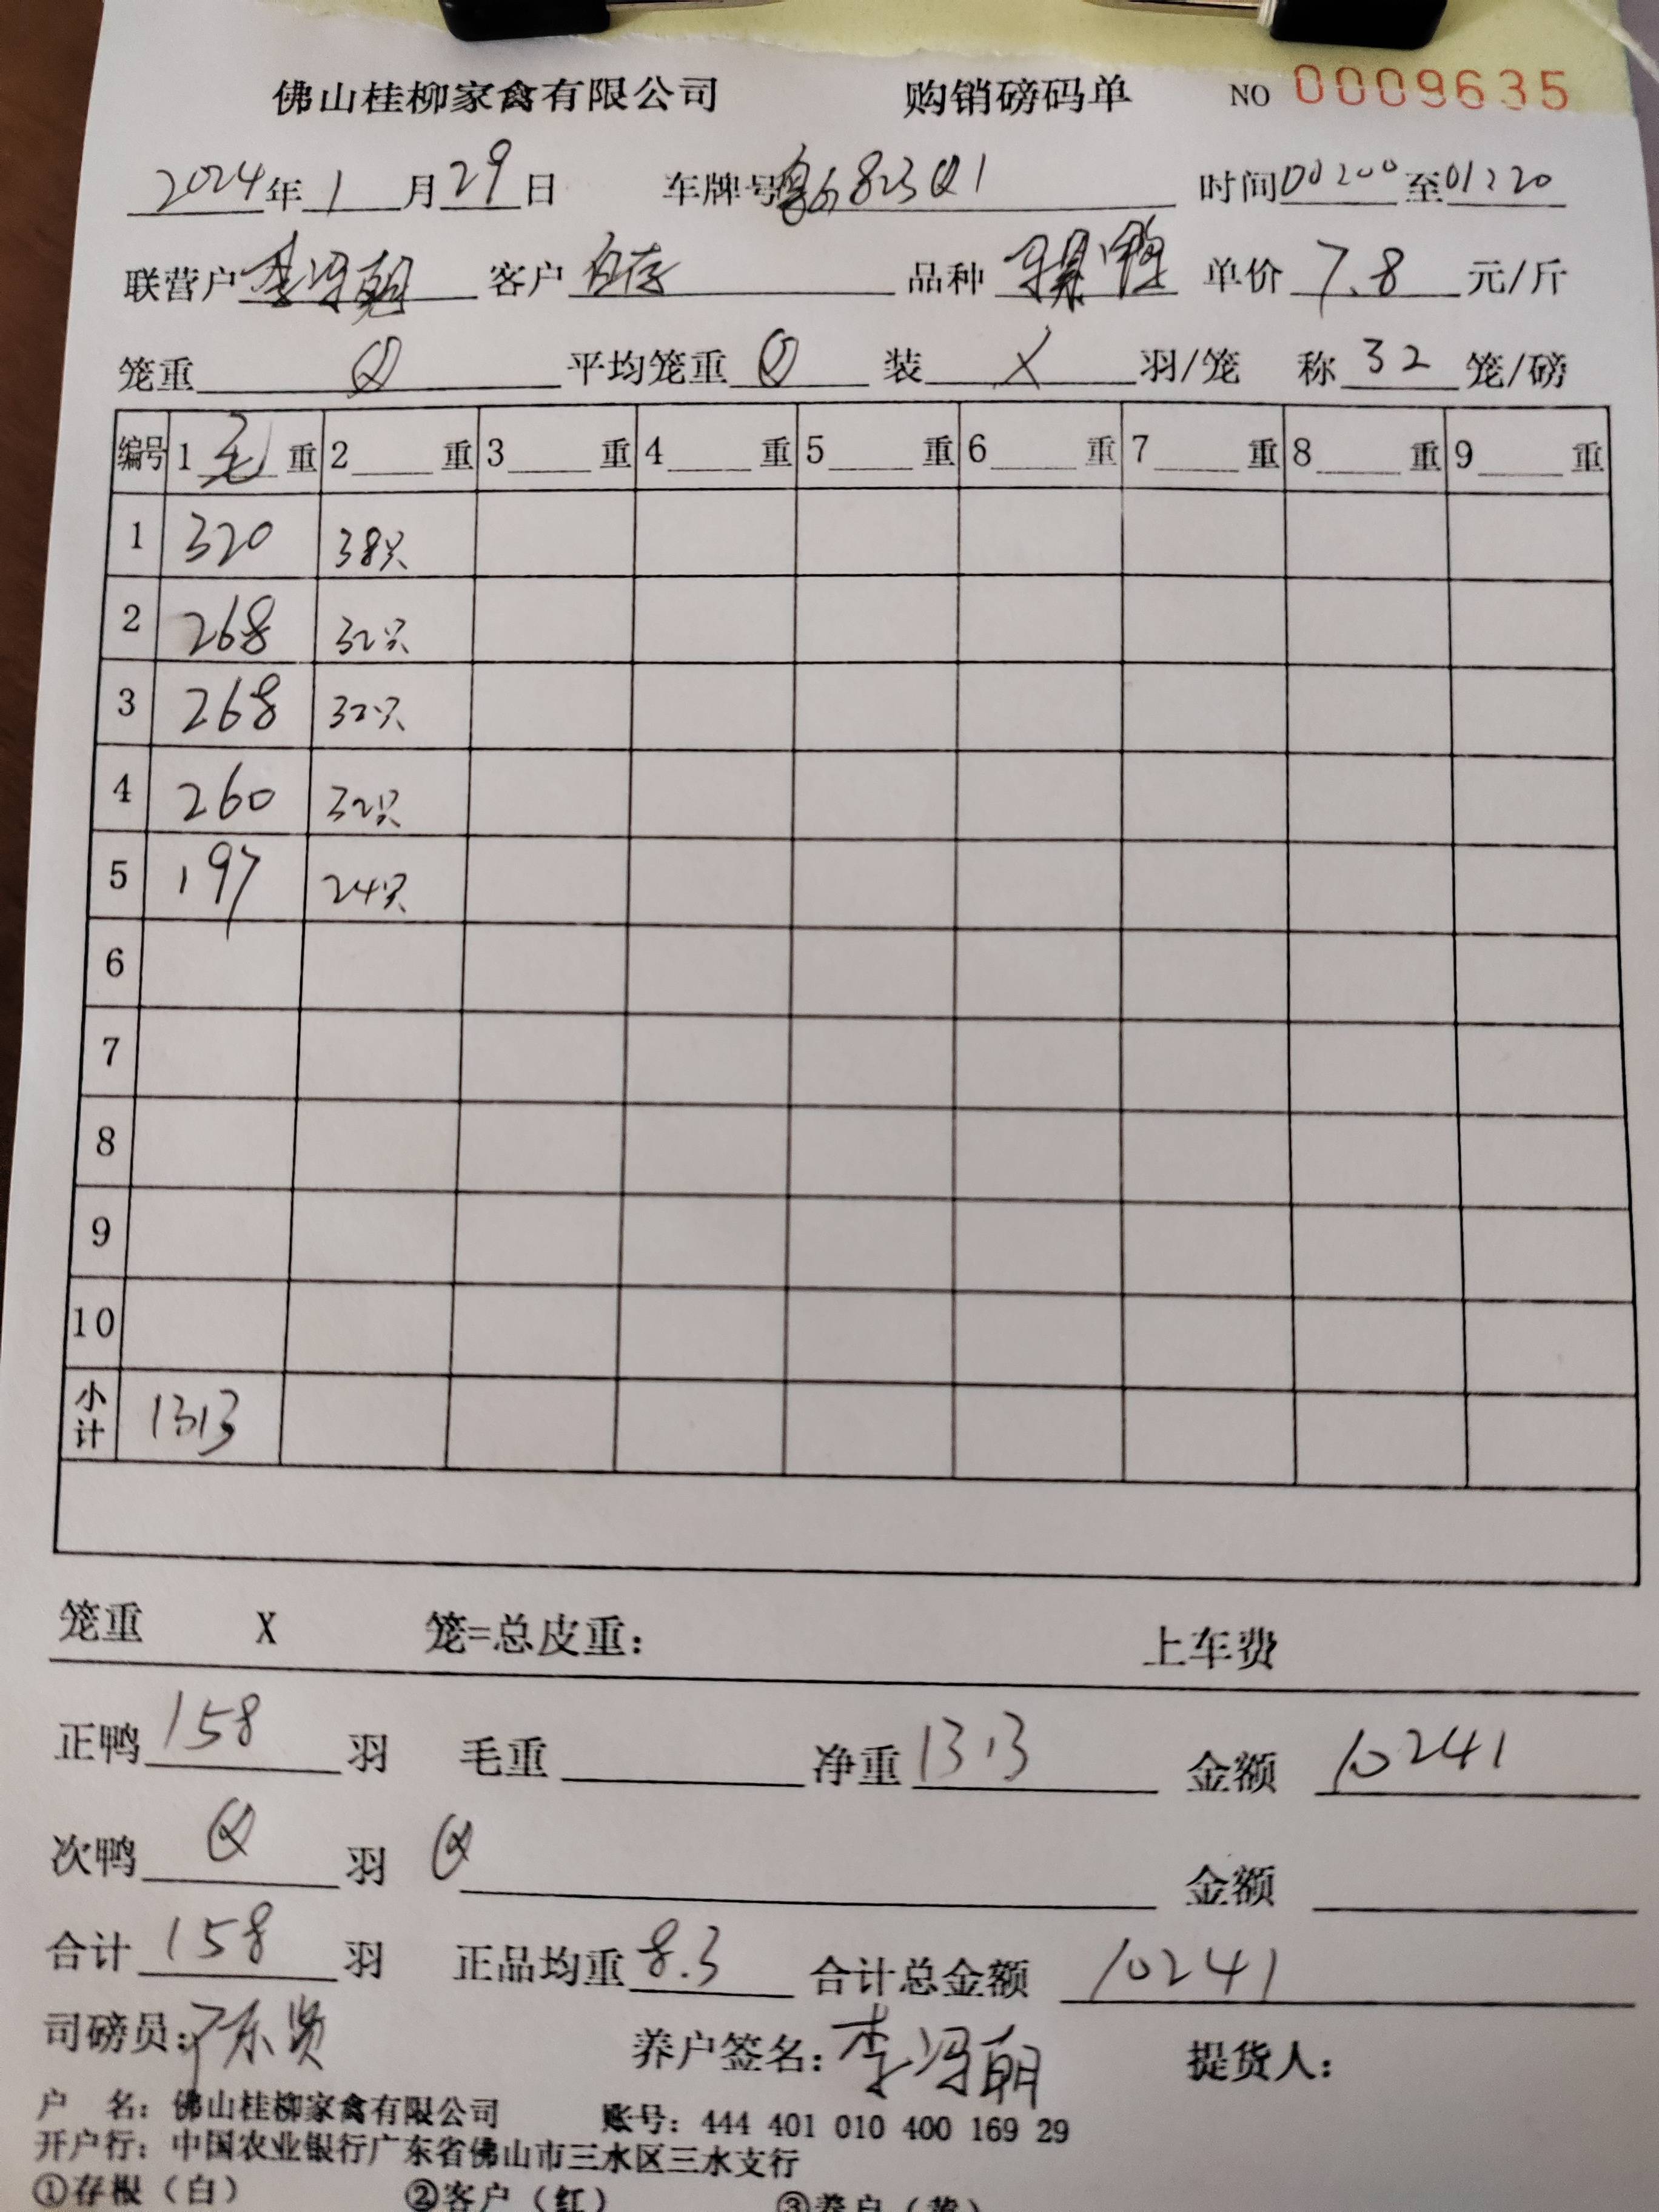 佛山桂柳家禽有限公司 购销磅码单 NO 0009635
2024年1月29日 车牌号 823Q1 时间00:00至01:20
联营户李冯朝 客户自存 品种 鸭 单价7.8元/斤
笼重 平均笼重 装X羽/笼 称32笼/磅
编号 1毛重 2重 3重 4重 5重 6重 7重 8重 9重
1 320 38只
2 268 32只
3 268 32只
4 260 32只
5 197 24只
6
7
8
9
10
小计 1313
笼重 X 笼=总皮重： 上车费
正鸭158羽 毛重 净重1313 金额 10241
次鸭 羽 金额
合计158羽 正品均重8.3 合计总金额 10241
司磅员：陈贤 养户签名：李冯朝 提货人：
户 名：佛山桂柳家禽有限公司 账号：444 401 010 400 169 29
开户行：中国农业银行广东省佛山市三水区三水支行
①存根（白） ②客户（红） ③养户（黄）